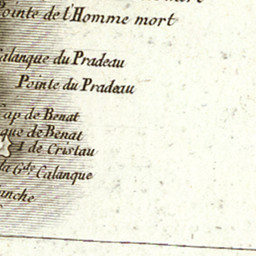 Pointe de l'Homme mort
Calanque du Pradeau
Pointe du Pradeau
Cap de Benat
que de Benat
I de Cristau
la G.de Calanque
anche